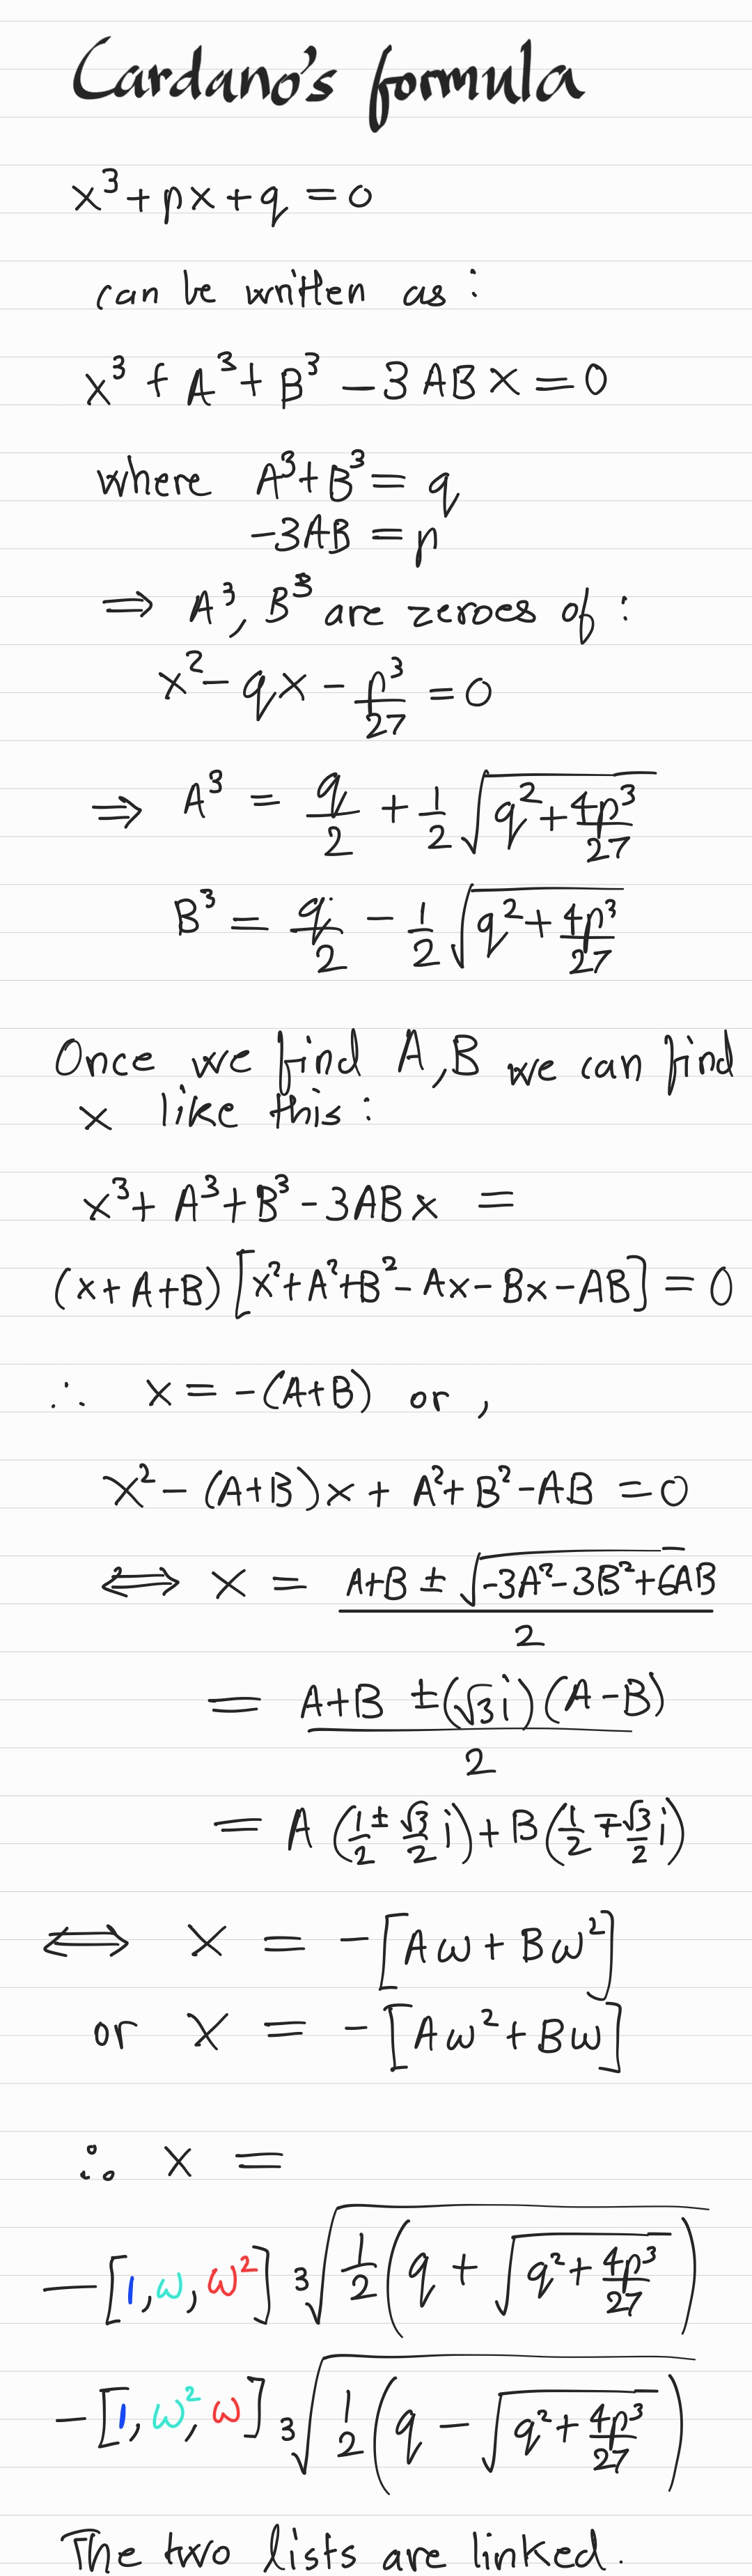 Cardano's formula
x³ + px + q = 0
can be written as :
x³ + A³ + B³ - 3ABx = 0
where A³ + B³ = q
-3AB = p
⇒ A³, B³ are zeroes of :
x² - qx - p³/27 = 0
⇒ A³ = q/2 + 1/2 √(q² + 4p³/27)
B³ = q/2 - 1/2 √(q² + 4p³/27)
Once we find A, B we can find
x like this :
x³ + A³ + B³ - 3ABx =
(x + A + B) [x² + A² + B² - Ax - Bx - AB] = 0
∴ x = -(A+B) or ,
x² - (A+B)x + A² + B² - AB = 0
⟺ x = (A+B ± √(-3A² - 3B² + 6AB))/2
= (A+B ± (√3 i)(A-B))/2
= A (1/2 ± √3/2 i) + B (1/2 ∓ √3/2 i)
⟺ x = -[Aω + Bω²]
or x = -[Aω² + Bω]
∴ x =
-[1, ω, ω²] ³√(1/2 (q + √(q² + 4p³/27)))
-[1, ω², ω] ³√(1/2 (q - √(q² + 4p³/27)))
The two lists are linked.